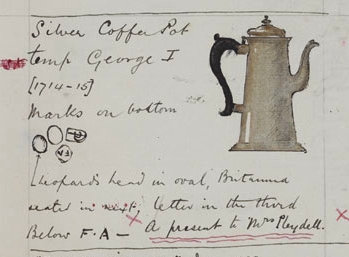 Silver Coffee Pot
temp George I
[1714-15]
Marks on bottom
Leopards head in oval, Britannia
seated in next, letter in the third
Below F.A - A present to Mrs Pleydell.